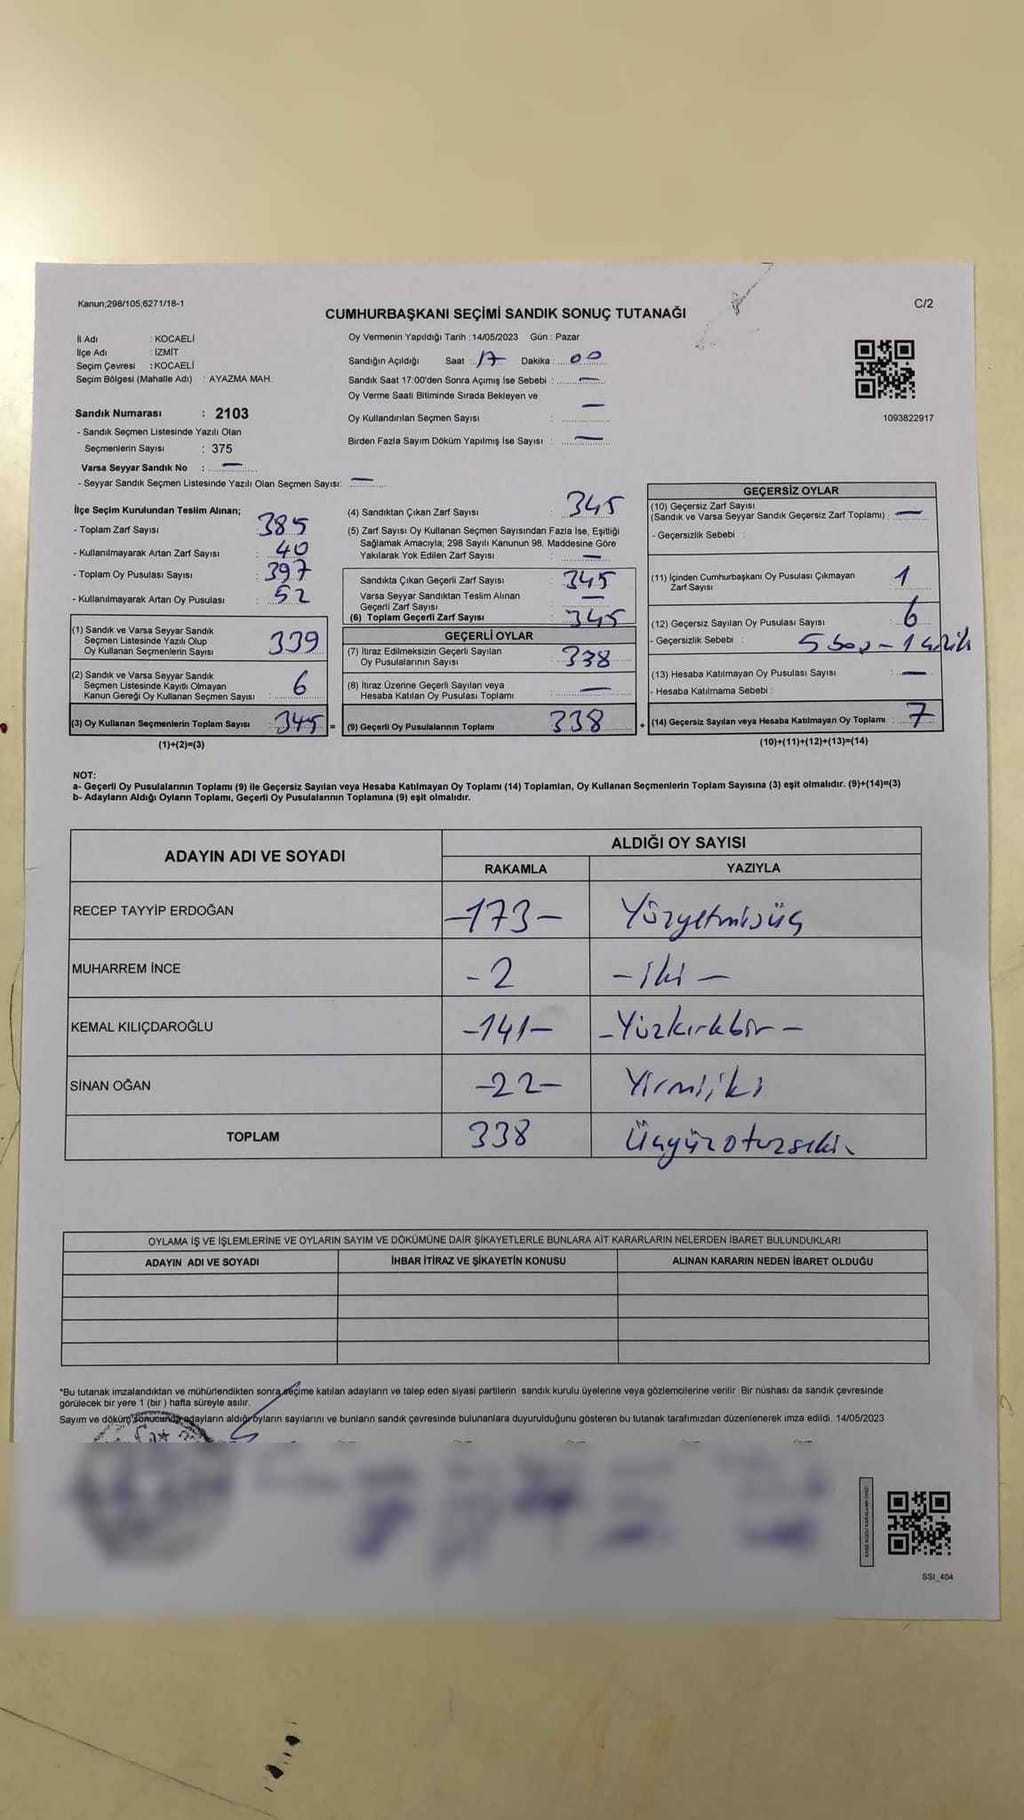 Kanun;298/105;6271/18-1
C/2
CUMHURBAŞKANI SEÇİMİ SANDIK SONUÇ TUTANAĞI
İl Adı : KOCAELİ
İlçe Adı : İZMİT
Seçim Çevresi : KOCAELİ
Seçim Bölgesi (Mahalle Adı) : AYAZMA MAH.
Sandık Numarası : 2103
- Sandık Seçmen Listesinde Yazılı Olan
Seçmenlerin Sayısı : 375
Varsa Seyyar Sandık No : —
- Seyyar Sandık Seçmen Listesinde Yazılı Olan Seçmen Sayısı: —
Oy Vermenin Yapıldığı Tarih :14/05/2023 Gün : Pazar
Sandığın Açıldığı Saat 17 Dakika : 00
Sandık Saat 17:00'den Sonra Açımış İse Sebebi : —
Oy Verme Saati Bitiminde Sırada Bekleyen ve
Oy Kullandırılan Seçmen Sayısı : —
Birden Fazla Sayım Döküm Yapılmış İse Sayısı : —
1093822917
İlçe Seçim Kurulundan Teslim Alınan;
- Toplam Zarf Sayısı : 385
- Kullanılmayarak Artan Zarf Sayısı : 40
- Toplam Oy Pusulası Sayısı : 397
- Kullanılmayarak Artan Oy Pusulası : 52
(1) Sandık ve Varsa Seyyar Sandık
Seçmen Listesinde Yazılı Olup
Oy Kullanan Seçmenlerin Sayısı 339
(2) Sandık ve Varsa Seyyar Sandık
Seçmen Listesinde Kayıtlı Olmayan
Kanun Gereği Oy Kullanan Seçmen Sayısı : 6
(3) Oy Kullanan Seçmenlerin Toplam Sayısı : 345 =
(1)+(2)=(3)
(4) Sandıktan Çıkan Zarf Sayısı : 345
(5) Zarf Sayısı Oy Kullanan Seçmen Sayısından Fazla İse, Eşitliği
Sağlamak Amacıyla; 298 Sayılı Kanunun 98. Maddesine Göre
Yakılarak Yok Edilen Zarf Sayısı : —
Sandıkta Çıkan Geçerli Zarf Sayısı : 345
Varsa Seyyar Sandıktan Teslim Alınan
Geçerli Zarf Sayısı : —
(6) Toplam Geçerli Zarf Sayısı : 345
GEÇERLİ OYLAR
(7) İtiraz Edilmeksizin Geçerli Sayılan
Oy Pusulalarının Sayısı : 338
(8) İtiraz Üzerine Geçerli Sayılan veya
Hesaba Katılan Oy Pusulası Toplamı : —
(9) Geçerli Oy Pusulalarının Toplamı : 338 +
GEÇERSİZ OYLAR
(10) Geçersiz Zarf Sayısı
(Sandık ve Varsa Seyyar Sandık Geçersiz Zarf Toplamı) : —
- Geçersizlik Sebebi :
(11) İçinden Cumhurbaşkanı Oy Pusulası Çıkmayan
Zarf Sayısı : 1
(12) Geçersiz Sayılan Oy Pusulası Sayısı : 6
- Geçersizlik Sebebi : 5 - 1
(13) Hesaba Katılmayan Oy Pusulası Sayısı : —
- Hesaba Katılmama Sebebi :
(14) Geçersiz Sayılan veya Hesaba Katılmayan Oy Toplamı : 7
(10)+(11)+(12)+(13)=(14)
NOT:
a- Geçerli Oy Pusulalarının Toplamı (9) ile Geçersiz Sayılan veya Hesaba Katılmayan Oy Toplamı (14) Toplamları, Oy Kullanan Seçmenlerin Toplam Sayısına (3) eşit olmalıdır. (9)+(14)=(3)
b- Adayların Aldığı Oyların Toplamı, Geçerli Oy Pusulalarının Toplamına (9) eşit olmalıdır.
ADAYIN ADI VE SOYADI
ALDIĞI OY SAYISI
RAKAMLA YAZIYLA
RECEP TAYYİP ERDOĞAN -173- Yüzyetmişüç
MUHARREM İNCE - 2 - iki -
KEMAL KILIÇDAROĞLU -141- -Yüzkırkbir -
SİNAN OĞAN -22- Yirmiiki
TOPLAM 338 Üçyüzotuzsekiz
OYLAMA İŞ VE İŞLEMLERİNE VE OYLARIN SAYIM VE DÖKÜMÜNE DAİR ŞİKAYETLERLE BUNLARA AİT KARARLARIN NELERDEN İBARET BULUNDUKLARI
ADAYIN ADI VE SOYADI İHBAR İTİRAZ VE ŞİKAYETİN KONUSU ALINAN KARARIN NEDEN İBARET OLDUĞU
*Bu tutanak imzalandıktan ve mühürlendikten sonra seçime katılan adayların ve talep eden siyasi partilerin sandık kurulu üyelerine veya gözlemcilerine verilir. Bir nüshası da sandık çevresinde
görülecek bir yere 1 (bir ) hafta süreyle asılır.
Sayım ve döküm sonucunda adayların aldığı oyların sayılarını ve bunların sandık çevresinde bulunanlara duyurulduğunu gösteren bu tutanak tarafımızdan düzenlenerek imza edildi. 14/05/2023
SSI_404